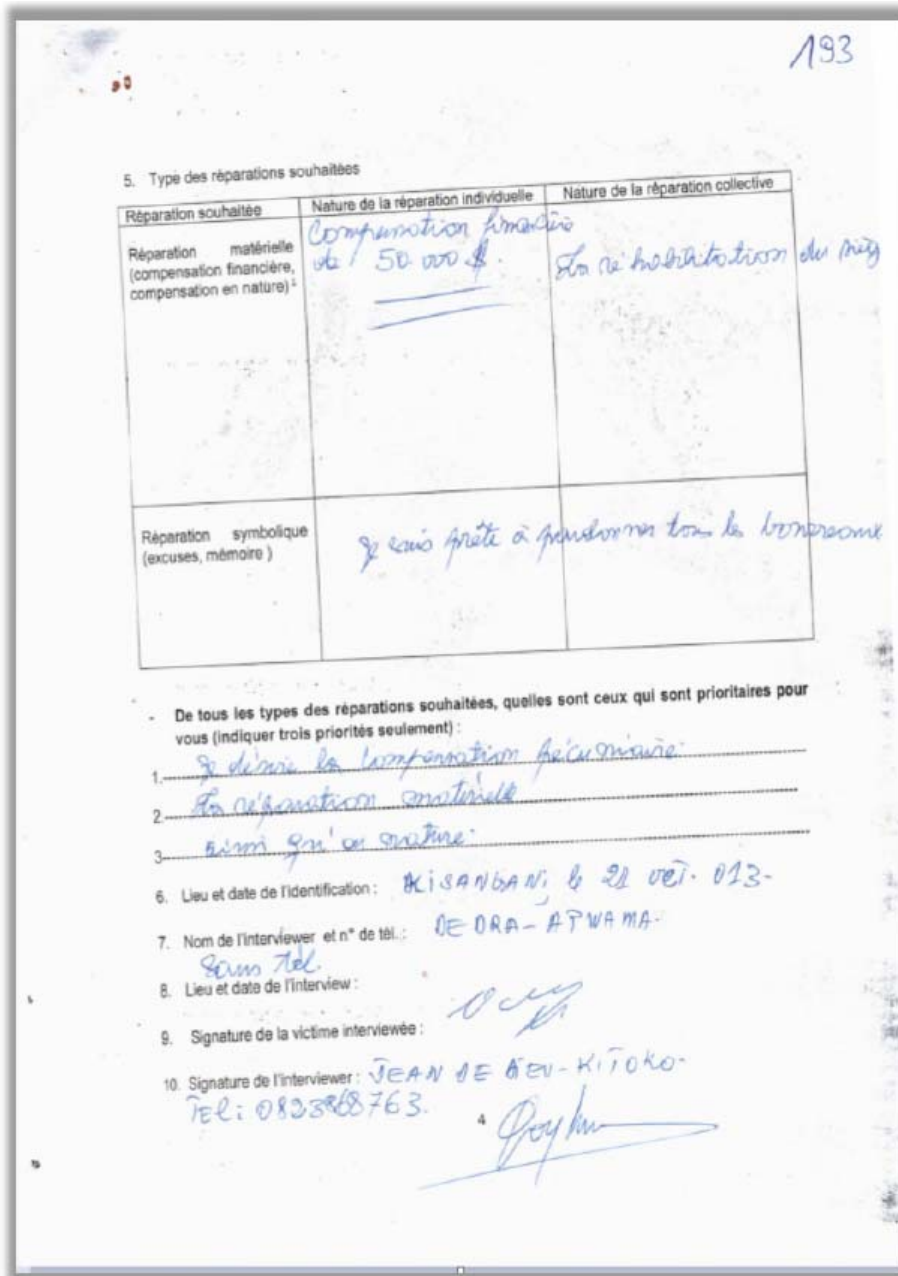 193
5. Type des réparations souhaitées
Réparation souhaitée
Nature de la réparation individuelle
Nature de la réparation collective
Réparation matérielle
(compensation financière,
compensation en nature)
Compensation financière
de 50 000 $.
La réhabilitation du
Réparation symbolique
(excuses, mémoire )
Je suis prête à pardonner tous les
- De tous les types des réparations souhaitées, quelles sont ceux qui sont prioritaires pour
vous (indiquer trois priorités seulement) :
1. Je désire la compensation pécuniaire.
2. La réparation matérielle
3 ainsi qu'en nature.
6. Lieu et date de l'identification : KISANGANI, le 21 oct. 013-
7. Nom de l'interviewer et n° de tél. : DEDRA-APWAMA-
Sans Tél.
8. Lieu et date de l'interview :
9. Signature de la victime interviewée :
10. Signature de l'interviewer : JEAN DE DIEU-KITOKO-
Tél: 0823868763.
4